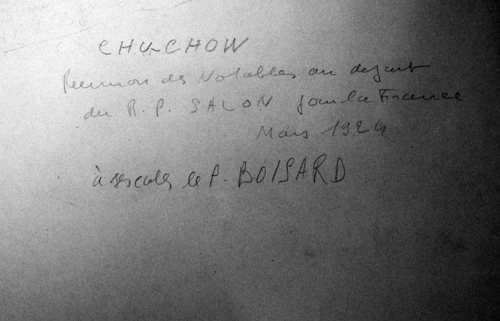 CHU-CHOW
Reunion des Notables au depart
du R.P. SALON pour la France
Mars 1924
à ses cotés le P. BOISARD